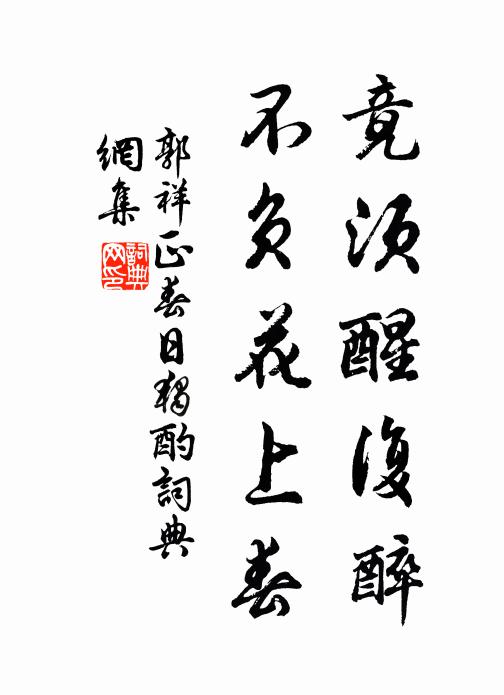 竟須醒復醉
不負花上春
郭祥正春日獨酌詞典
網集
詞典
网印